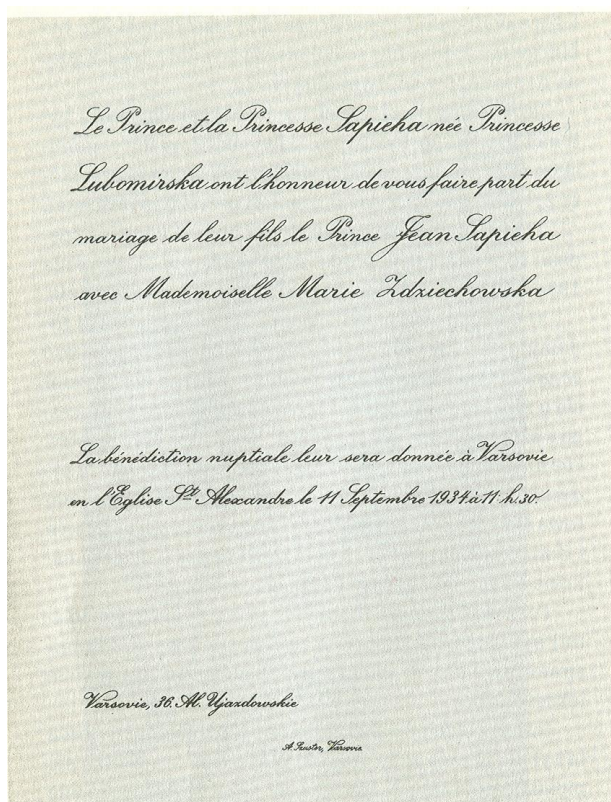 Le Prince et la Princesse Sapieha née Princesse
Lubomirska ont l'honneur de vous faire part du
mariage de leur fils le Prince Jean Sapieha
avec Mademoiselle Marie Zdziechowska
La bénédiction nuptiale leur sera donnée à Varsovie
en l'Eglise St Alexandre le 11 Septembre 1934 à 11 h. 30.
Varsovie, 36. Al. Ujazdowskie
A. Szuster, Varsovie